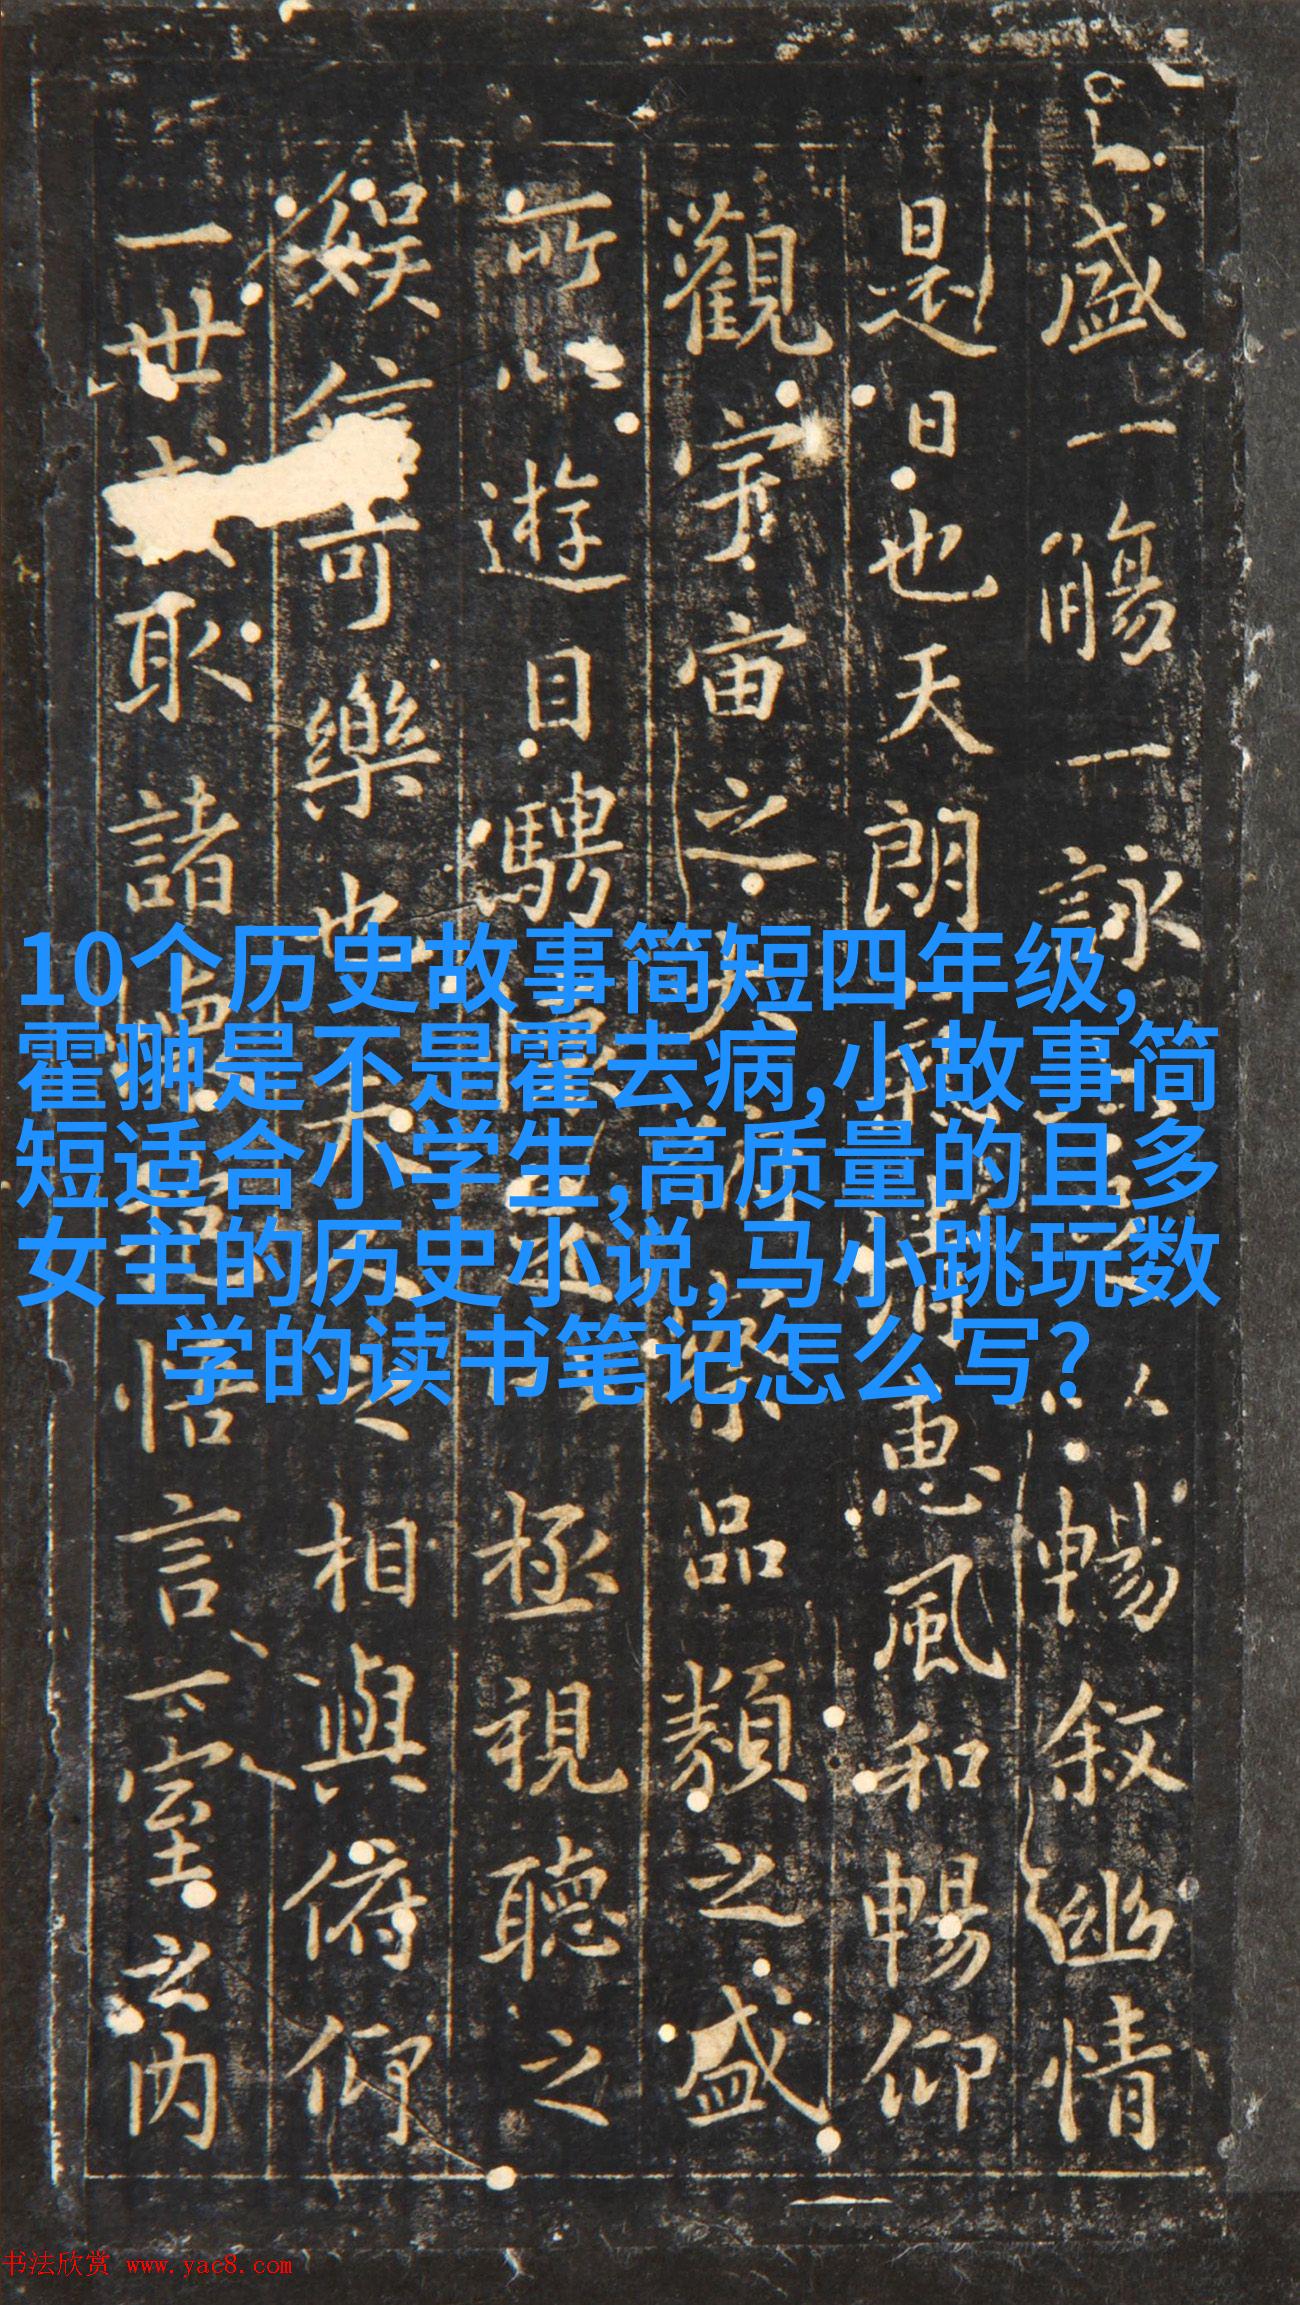 盛一觴一詠以暢敘幽情
是日也天朗惠風和暢仰
觀宇宙之品類之盛
所以遊目騁極視聽之
娛信可樂也夫人之相與俯仰
一世取諸悟言一室之內
10个历史故事简短四年级,
霍翀是不是霍去病,小故事简
短适合小学生,高质量的且多
女主的历史小说,马小跳玩数
学的读书笔记怎么写?
书法欣赏 www.yac8.com